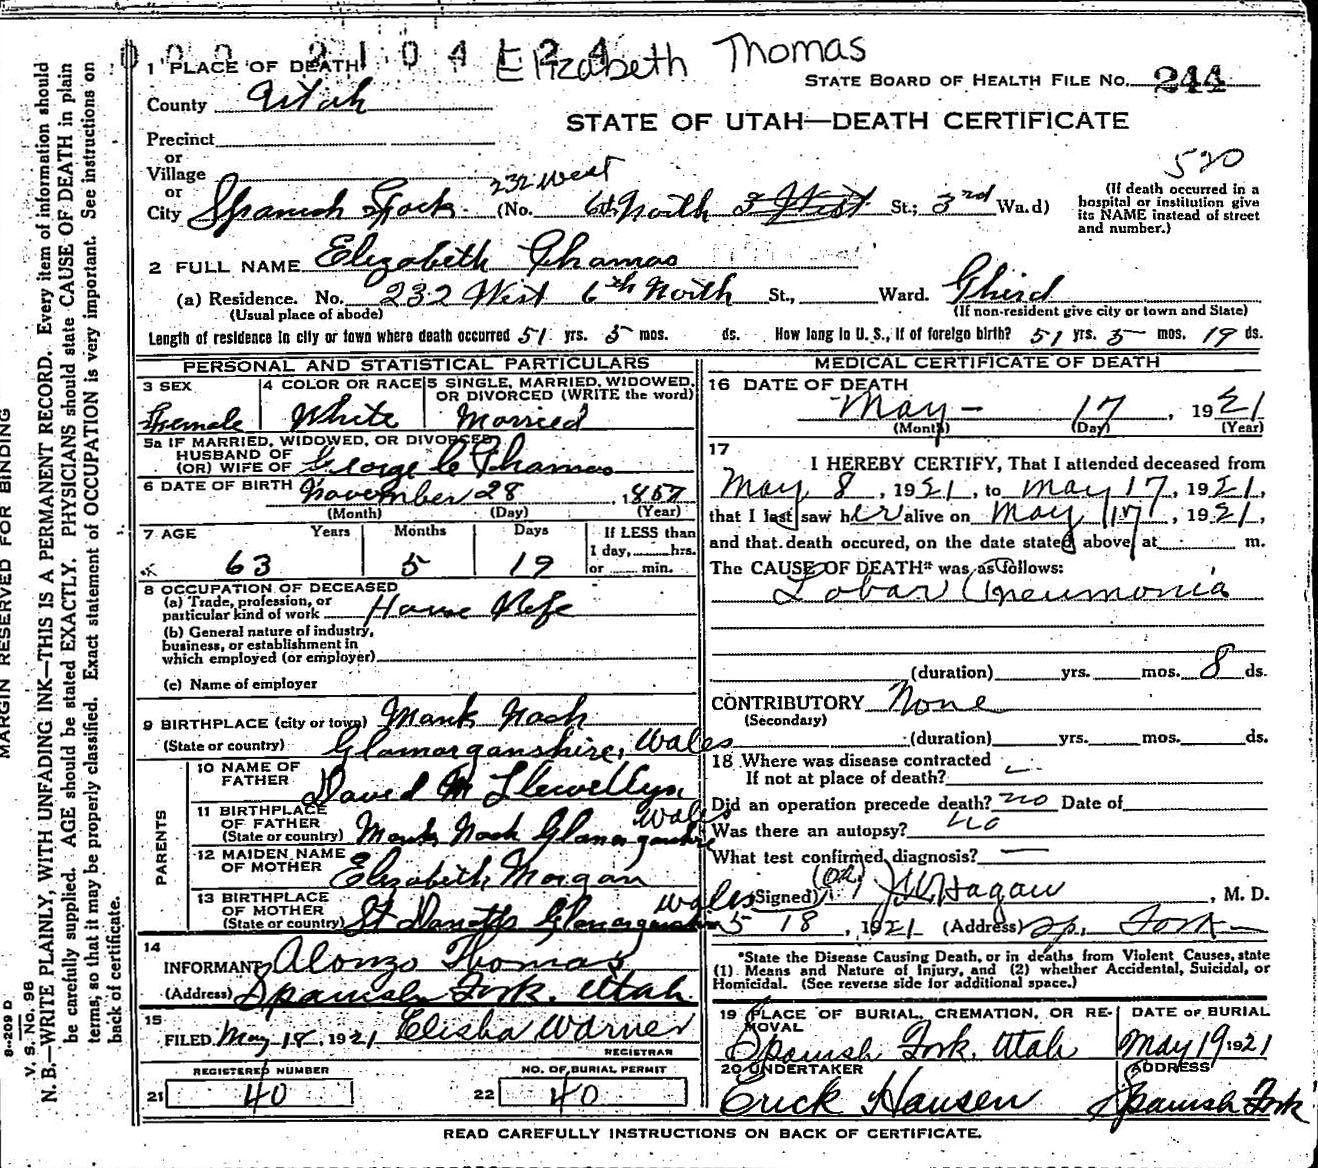 000 2104124
Elizabeth Thomas
1 PLACE OF DEATH
STATE BOARD OF HEALTH FILE No. 244
County Utah
STATE OF UTAH—DEATH CERTIFICATE
Precinct
or
Village
or
520
232 West
City Spanish Fork (No. 6th North St.; 3rd Wa.d)
(If death occurred in a hospital or institution give its NAME instead of street and number.)
2 FULL NAME Elizabeth Thomas
(a) Residence. No. 232 West 6th North St., Ward. Third
(Usual place of abode) (If non-resident give city or town and State)
Length of residence in city or town where death occurred 51 yrs. 5 mos. ds. How long in U. S., if of foreign birth? 51 yrs. 5 mos. 19 ds.
PERSONAL AND STATISTICAL PARTICULARS
3 SEX Female
4 COLOR OR RACE White
5 SINGLE, MARRIED, WIDOWED, OR DIVORCED (WRITE the word) Married
5a IF MARRIED, WIDOWED, OR DIVORCED
HUSBAND OF
(OR) WIFE OF George C Thomas
6 DATE OF BIRTH November 28, 1857
(Month) (Day) (Year)
7 AGE Years Months Days If LESS than
1 day, hrs.
or min.
63 5 19
8 OCCUPATION OF DECEASED
(a) Trade, profession, or
particular kind of work House Wife
(b) General nature of industry,
business, or establishment in
which employed (or employer)
(c) Name of employer
9 BIRTHPLACE (city or town) Monk Nash
(State or country) Glamorganshire, Wales
PARENTS
10 NAME OF FATHER David M Llewellyn
11 BIRTHPLACE OF FATHER Wales
(State or country) Monk Nash Glamorganshire
12 MAIDEN NAME OF MOTHER Elizabeth Morgan
13 BIRTHPLACE OF MOTHER Wales
(State or country) St Glamorganshire
14
INFORMANT Alonzo Thomas
(Address) Spanish Fork, Utah
15
FILED May 18, 1921 Elisha Warner
REGISTRAR
REGISTERED NUMBER NO. OF BURIAL PERMIT
21 40 22 40
MEDICAL CERTIFICATE OF DEATH
16 DATE OF DEATH
May — 17, 1921
(Month) (Day) (Year)
17
I HEREBY CERTIFY, That I attended deceased from
May 8, 1921, to May 17, 1921,
that I last saw her alive on May 17, 1921,
and that death occured, on the date stated above, at m.
The CAUSE OF DEATH* was as follows:
Lobar Pneumonia
(duration) yrs. mos. 8 ds.
CONTRIBUTORY None
(Secondary)
(duration) yrs. mos. ds.
18 Where was disease contracted
If not at place of death?
Did an operation precede death? no Date of
Was there an autopsy? no
What test confirmed diagnosis?
(Signed) J W Hagan, M. D.
5 18, 1921 (Address) Sp. Fork
*State the Disease Causing Death, or in deaths from Violent Causes, state
(1) Means and Nature of Injury, and (2) whether Accidental, Suicidal, or
Homicidal. (See reverse side for additional space.)
19 PLACE OF BURIAL, CREMATION, OR RE-
MOVAL DATE OF BURIAL
Spanish Fork, Utah May 19 1921
20 UNDERTAKER ADDRESS
Erick Hansen Spanish Fork
READ CAREFULLY INSTRUCTIONS ON BACK OF CERTIFICATE.
MARGIN RESERVED FOR BINDING
8—209 D
V. S. No. 98
N. B.—WRITE PLAINLY, WITH UNFADING INK—THIS IS A PERMANENT RECORD. Every item of information should
be carefully supplied. AGE should be stated EXACTLY. PHYSICIANS should state CAUSE OF DEATH in plain
terms, so that it may be properly classified. Exact statement of OCCUPATION is very important. See instructions on
back of certificate.